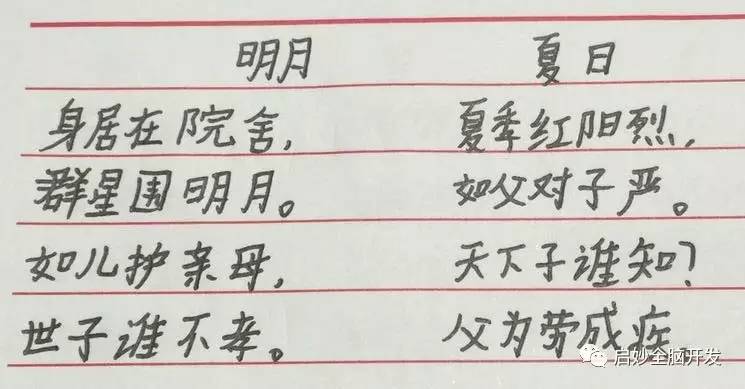 明月
身居在院舍，
群星围明月。
如儿护亲母，
世子谁不孝。
夏日
夏季红阳烈，
如父对子严。
天下子谁知？
父为劳成疾
启妙全脑开发